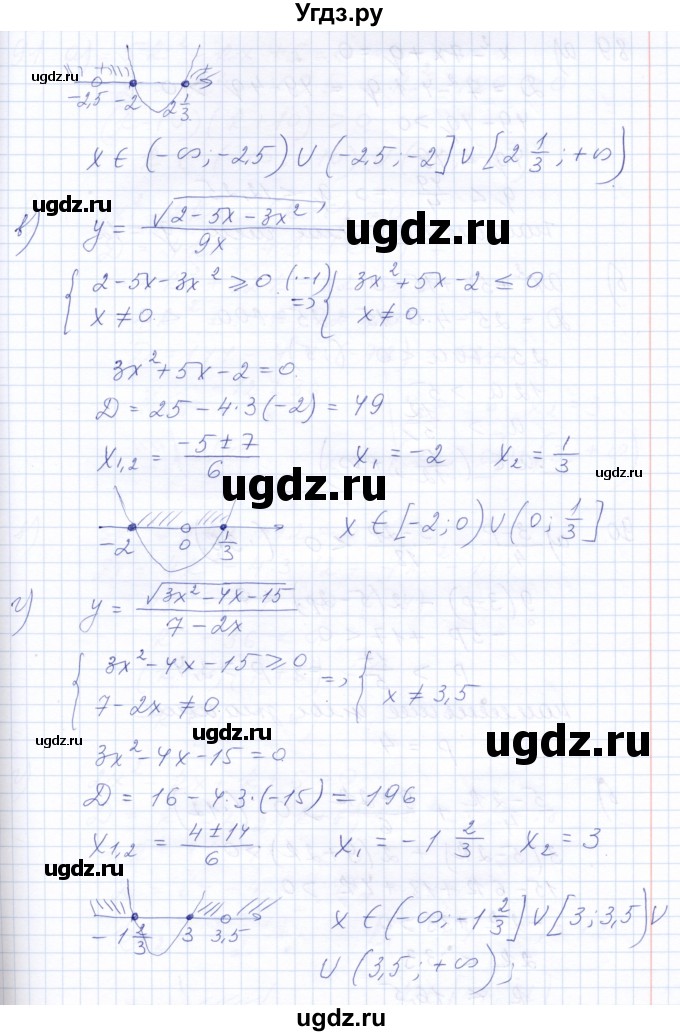 Угдз.ру
ugdz.ru
-2,5 -2 2 1/3
x ∈ (-∞; -2,5) ∪ (-2,5; -2] ∪ [2 1/3; +∞)
ugdz.ru
ugdz.ru
в) y = √(2-5x-3x²) / 9x
{ 2-5x-3x² ≥ 0 (·-1) => { 3x²+5x-2 ≤ 0
x ≠ 0. x ≠ 0.
ugdz.ru
3x²+5x-2=0.
D = 25-4·3(-2) = 49
x₁,₂ = (-5±7)/6 x₁ = -2 x₂ = 1/3
ugdz.ru
ugdz.ru
ugdz.ru
-2 0 1/3 x ∈ [-2; 0) ∪ (0; 1/3]
г) y = √(3x²-4x-15) / (7-2x)
ugdz.ru
{ 3x²-4x-15 ≥ 0 =>, {
7-2x ≠ 0. x ≠ 3,5
ugdz.ru
ugdz.ru
3x²-4x-15=0
D = 16-4·3·(-15) = 196
x₁,₂ = (4±14)/6. x₁ = -1 2/3 x₂ = 3
ugdz.ru
-1 2/3 3 3,5 x ∈ (-∞; -1 2/3] ∪ [3; 3,5) ∪
∪ (3,5; +∞);
ugdz.ru
ugdz.ru